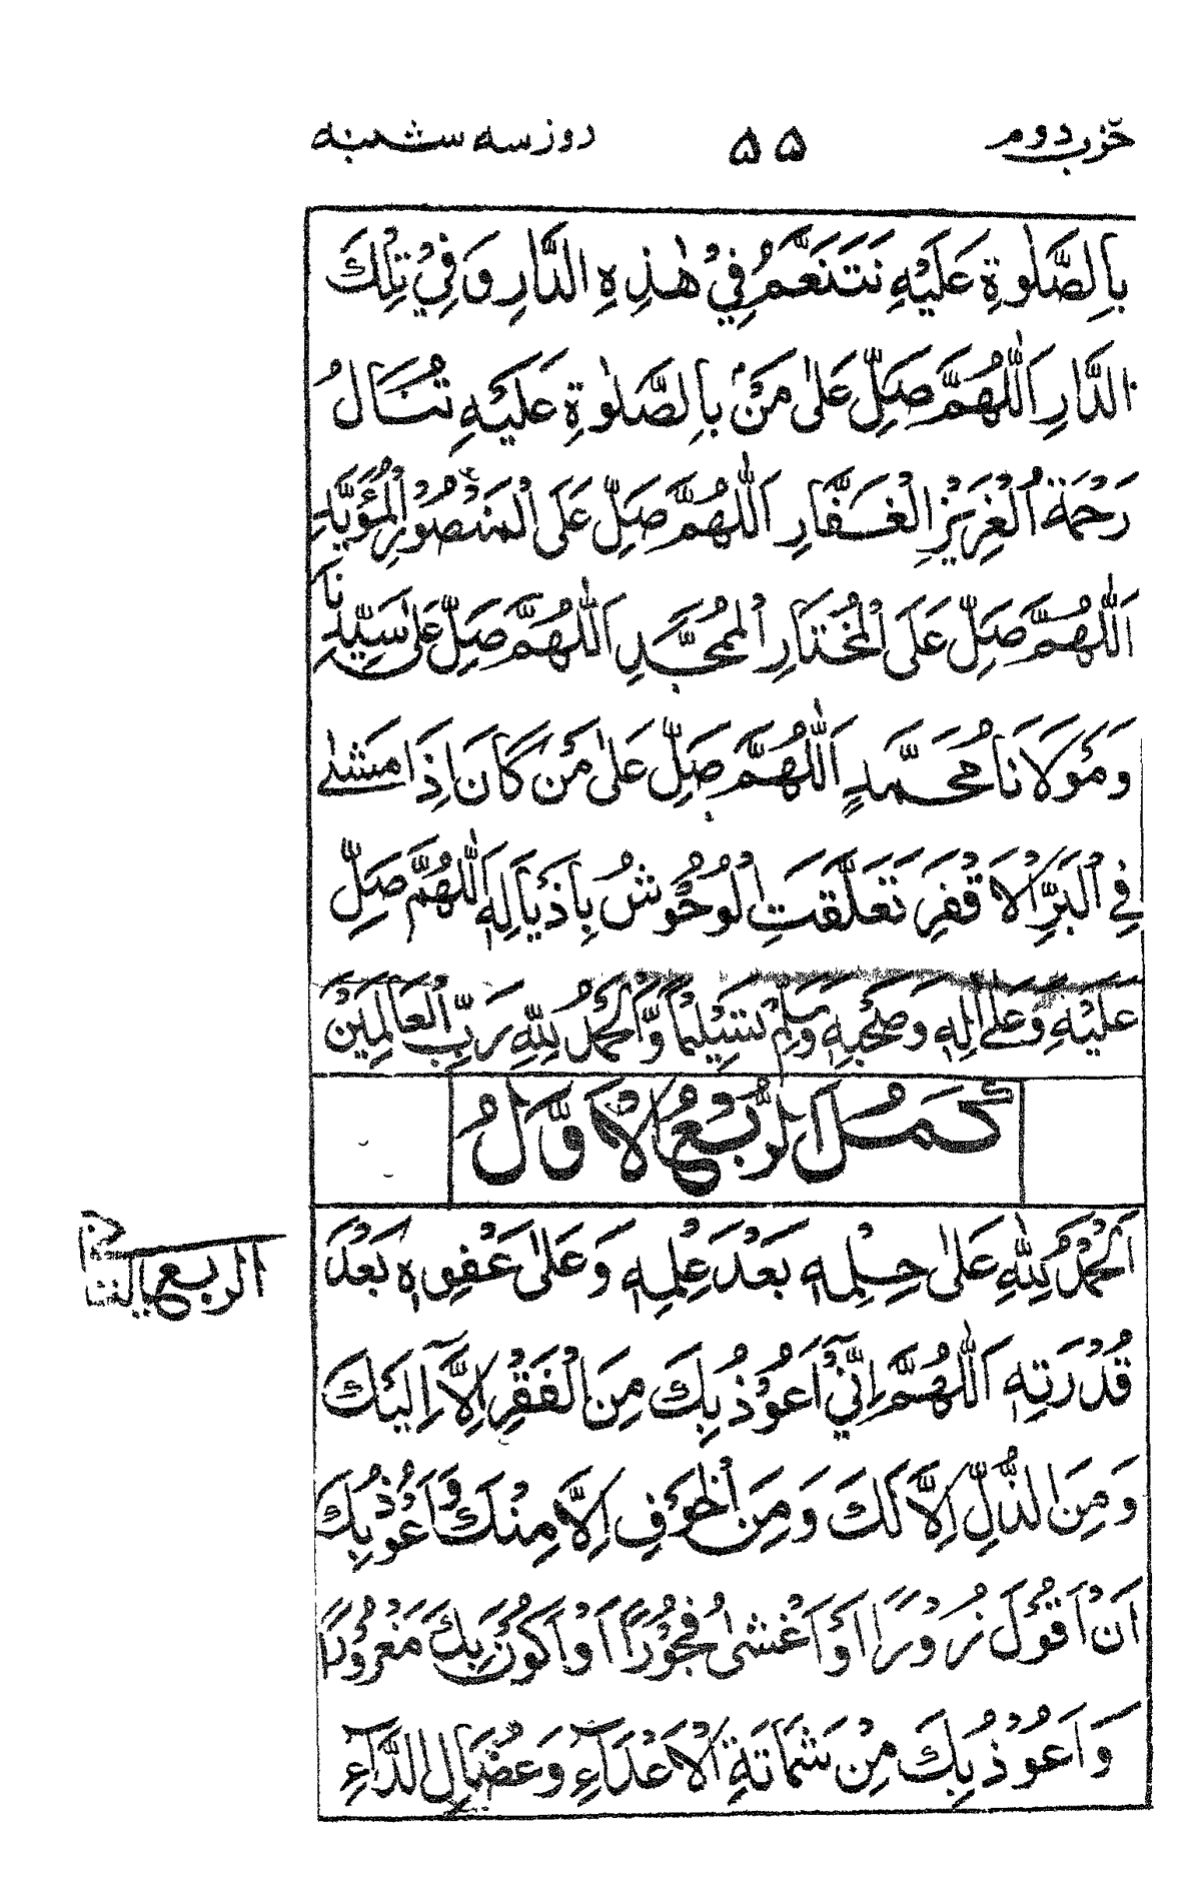 حزب دوم ۵۵ روز سه شعنبه
بِالصَّلٰوةِ عَلَيْهِ نَتَنَعَّمُ فِيْ هٰذِهِ الدَّارِ وَفِيْ تِلْكَ
الدَّارِ اَللّٰهُمَّ صَلِّ عَلٰى مَنْ بِالصَّلٰوةِ عَلَيْهِ تُنَالُ
رَحْمَةُ الْعَزِيْزِ الْغَفَّارِ اَللّٰهُمَّ صَلِّ عَلَى الْمَنْصُوْرِ الْمُؤَيَّدِ
اَللّٰهُمَّ صَلِّ عَلَى الْمُخْتَارِ الْمُمَجَّدِ اَللّٰهُمَّ صَلِّ عَلٰى سَيِّدِنَا
وَمَوْلَانَا مُحَمَّدٍ اَللّٰهُمَّ صَلِّ عَلٰى مَنْ كَانَ اِذَا مَشٰى
فِي الْبَرِّ الْاَقْفَرِ تَعَلَّقَتِ الْوُحُوْشُ بِاَذْيَالِهٖ اَللّٰهُمَّ صَلِّ
عَلَيْهِ وَعَلٰى اٰلِهٖ وَصَحْبِهٖ وَسَلِّمْ تَسْلِيْمًا وَّالْحَمْدُ لِلّٰهِ رَبِّ الْعَالَمِيْنَ
كَمُلَ الرُّبُعُ الْاَوَّلُ
اَلْحَمْدُ لِلّٰهِ عَلٰى حِلْمِهٖ بَعْدَ عِلْمِهٖ وَعَلٰى عَفْوِهٖ بَعْدَ
الربع
قُدْرَتِهٖ اَللّٰهُمَّ اِنِّيْ اَعُوْذُ بِكَ مِنَ الْفَقْرِ اِلَّا اِلَيْكَ
وَمِنَ الذُّلِّ اِلَّا لَكَ وَمِنَ الْخَوْفِ اِلَّا مِنْكَ وَاَعُوْذُ بِكَ
اَنْ اَقُوْلَ زُوْرًا اَوْ اَغْشٰى فُجُوْرًا اَوْ اَكُوْنَ بِكَ مَغْرُوْرًا
وَاَعُوْذُ بِكَ مِنْ شَمَاتَةِ الْاَعْدَآءِ وَعُضَالِ الدَّآءِ